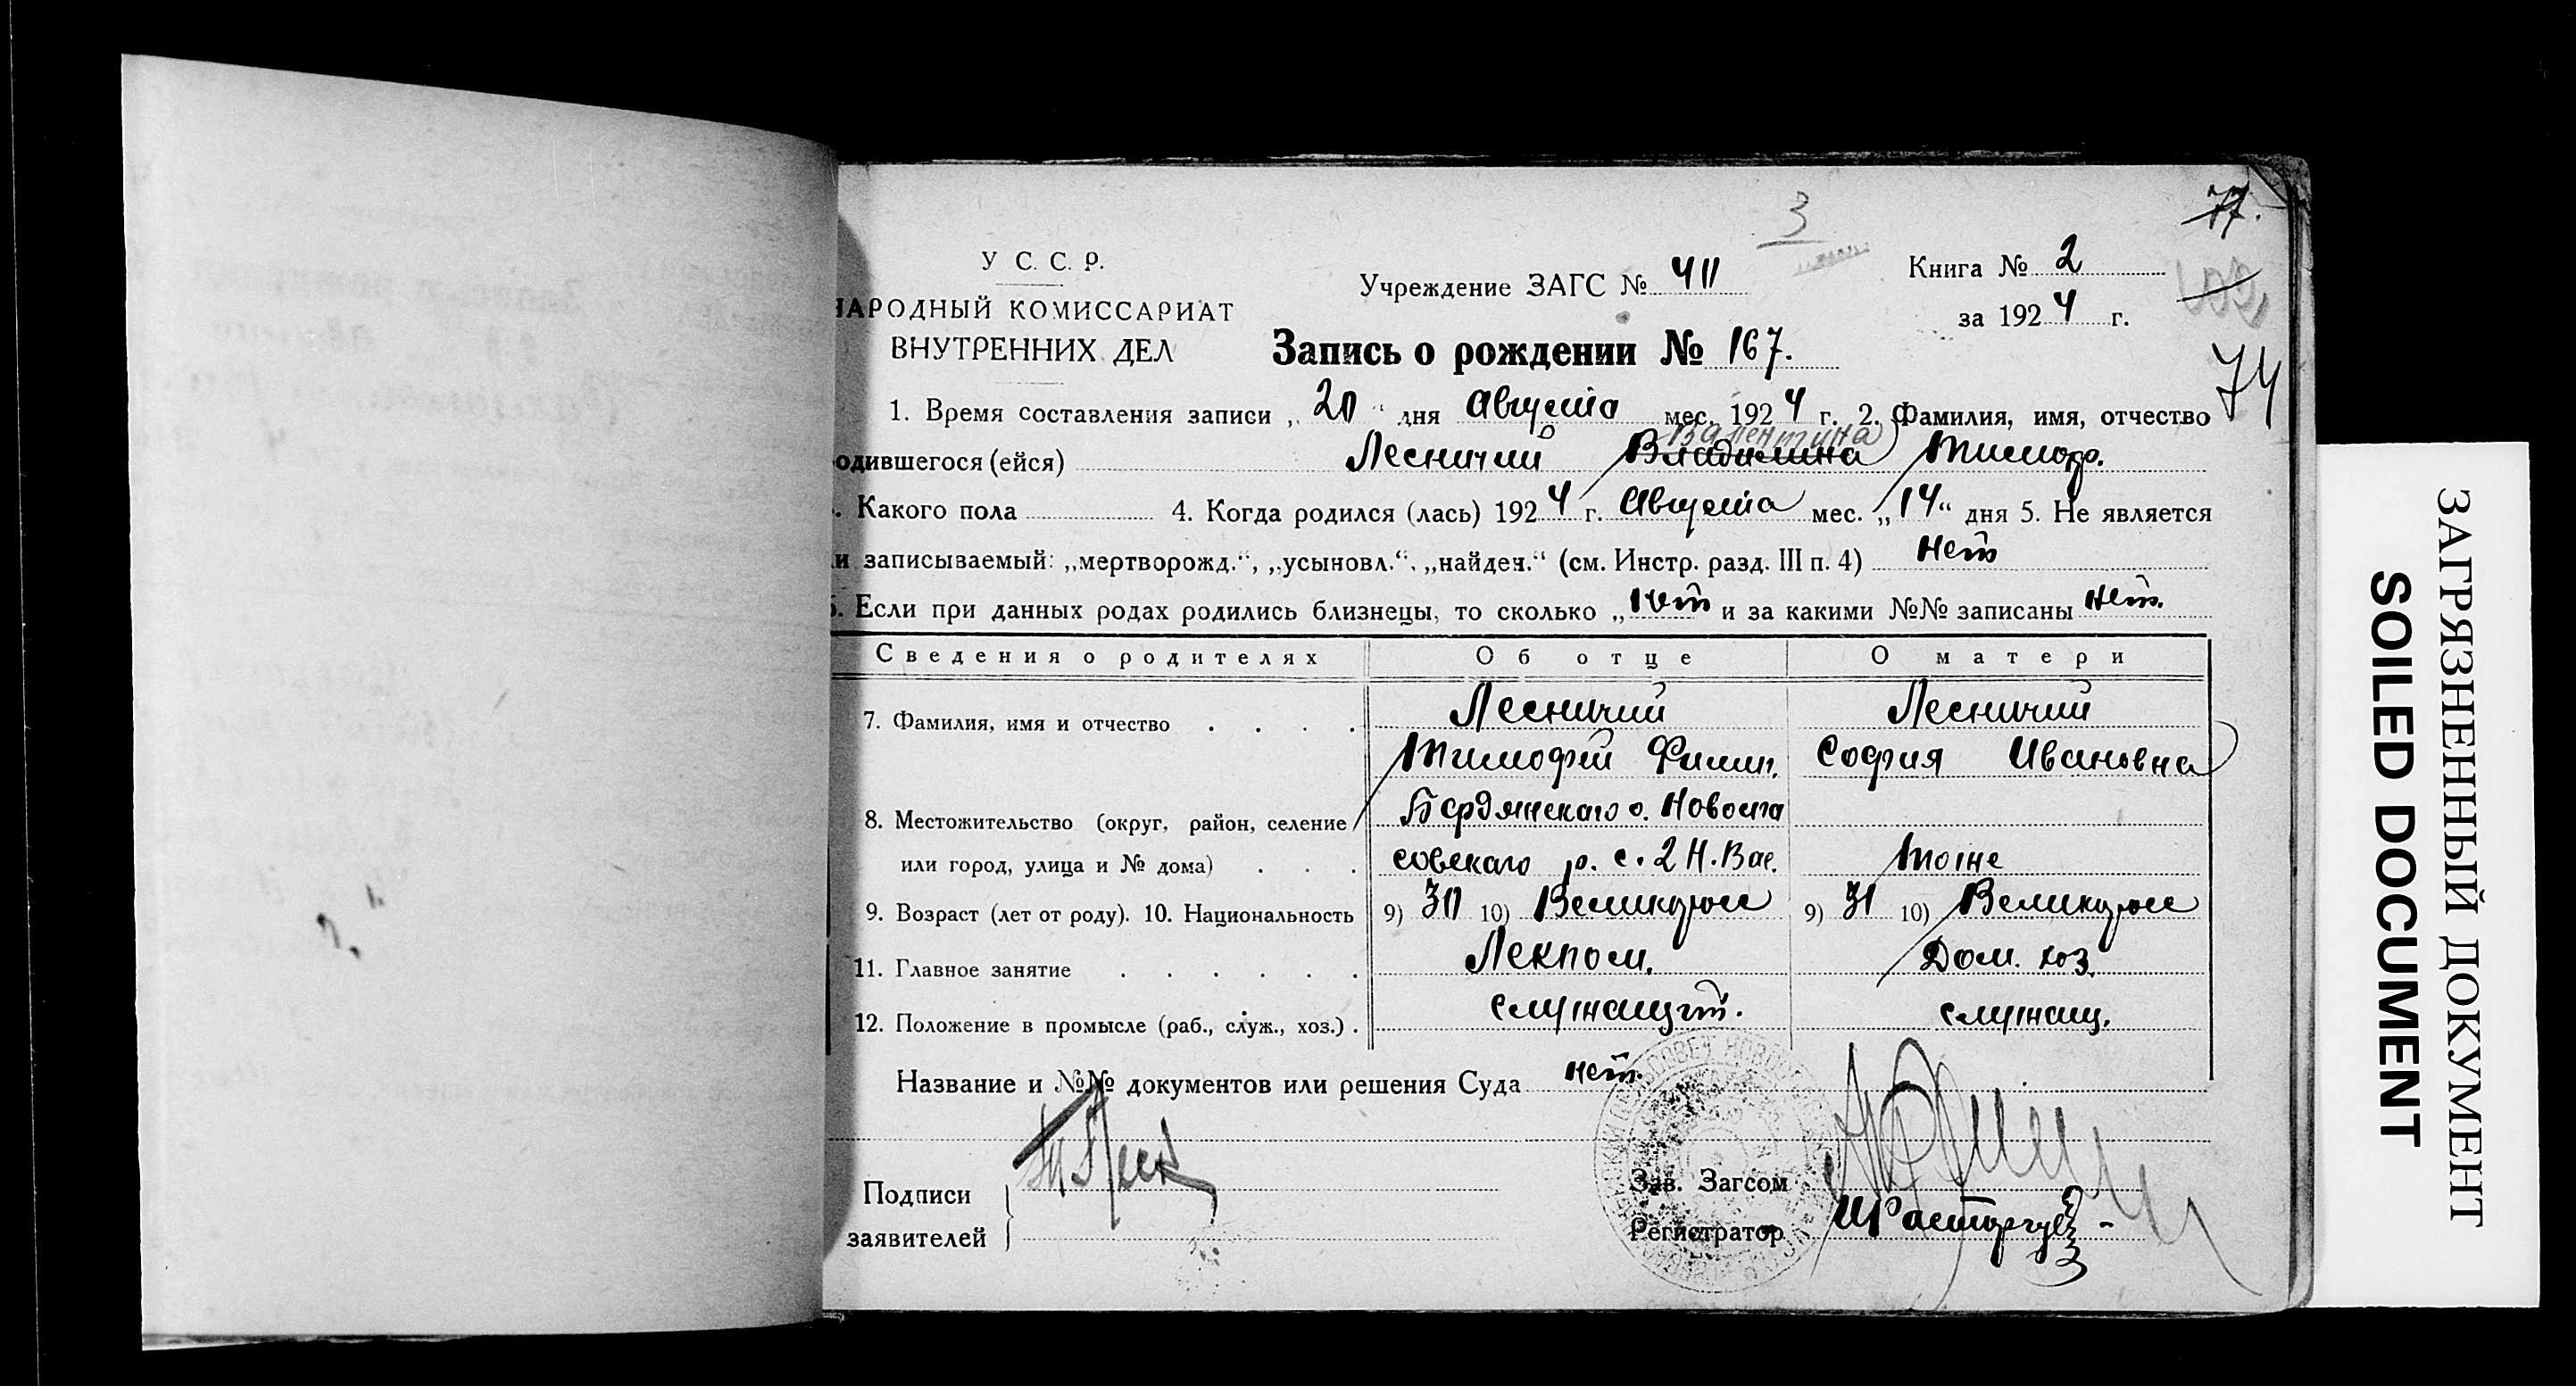 77.
3
У С. С. Р.
Учреждение ЗАГС № 411
Книга № 2
НАРОДНЫЙ КОМИССАРИАТ
за 1924 г.
ВНУТРЕННИХ ДЕЛ
Запись о рождении № 167.
74
1. Время составления записи „ 20 “ дня Августа мес. 1924 г. 2. Фамилия, имя, отчество
Валентина
одившегося (ейся) Лесничий Владимина Тимоф.
. Какого пола 4. Когда родился (лась) 1924 г. Августа мес. „14“ дня 5. Не является
и записываемый: „мертворожд.“, „усыновл.“, „найден.“ (см. Инстр. разд. III п. 4) нет
6. Если при данных родах родились близнецы, то сколько „нет и за какими №№ записаны нет.
Сведения о родителях Об отце О матери
7. Фамилия, имя и отчество . . . . Лесничий Лесничий
Тимофей Филип. София Ивановна
8. Местожительство (округ, район, селение Бердянскаго о. Новоспа
или город, улица и № дома) . . . совскаго р. с. 2 Н. Вас. тоже
9. Возраст (лет от роду). 10. Национальность 9) 30 10) Великоросс 9) 31 10) Великоросс
11. Главное занятие . . . . . . Лекпом. Дом. хоз.
12. Положение в промысле (раб., служ., хоз.) . служащий. служащ.
Название и №№ документов или решения Суда нет.
Подписи
заявителей
Зав. Загсом
Регистратор
ЗАГРЯЗНЕННЫЙ ДОКУМЕНТ
SOILED DOCUMENT